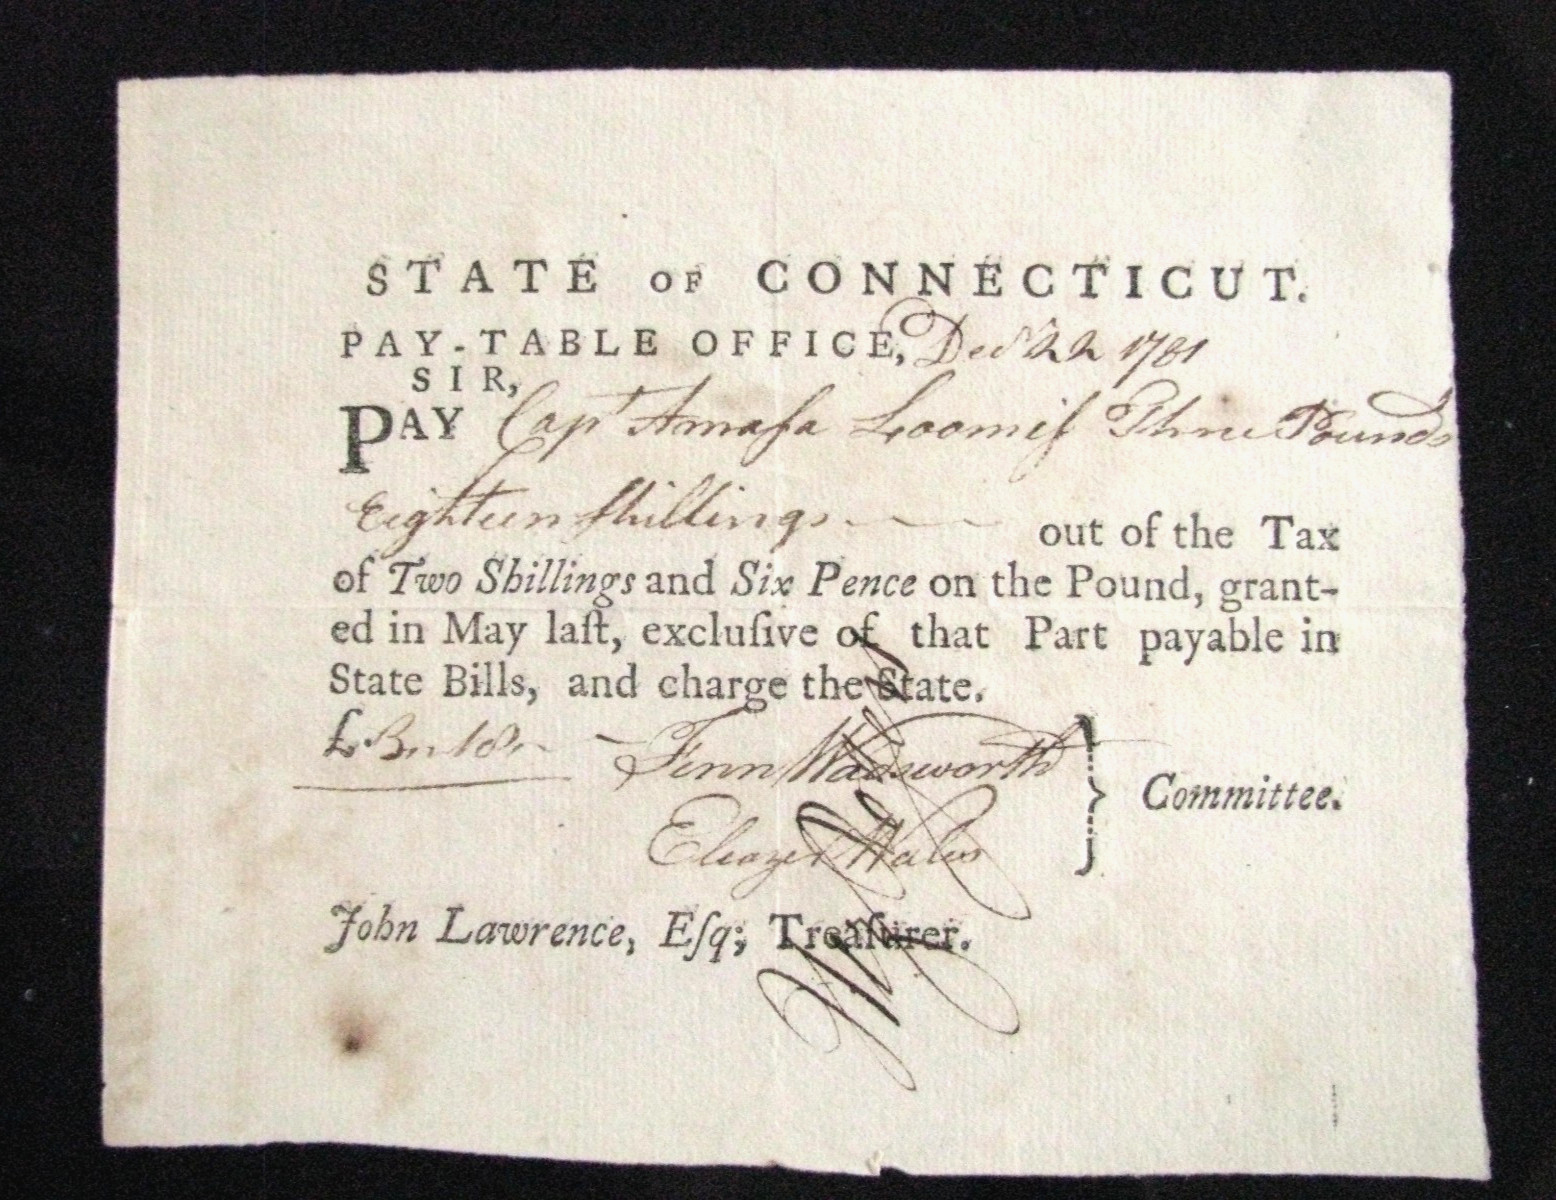 STATE OF CONNECTICUT.
PAY-TABLE OFFICE, Decr 22 1781
SIR,
PAY Capt Amaſa Loomiſ Three Pounds
Eighteen ſhillings out of the Tax
of Two Shillings and Six Pence on the Pound, grant-
ed in May laſt, excluſive of that Part payable in
State Bills, and charge the State.
£3 18 Fenn Wadsworth
Eleazer Wales
Committee.
John Lawrence, Eſq; Treaſurer.